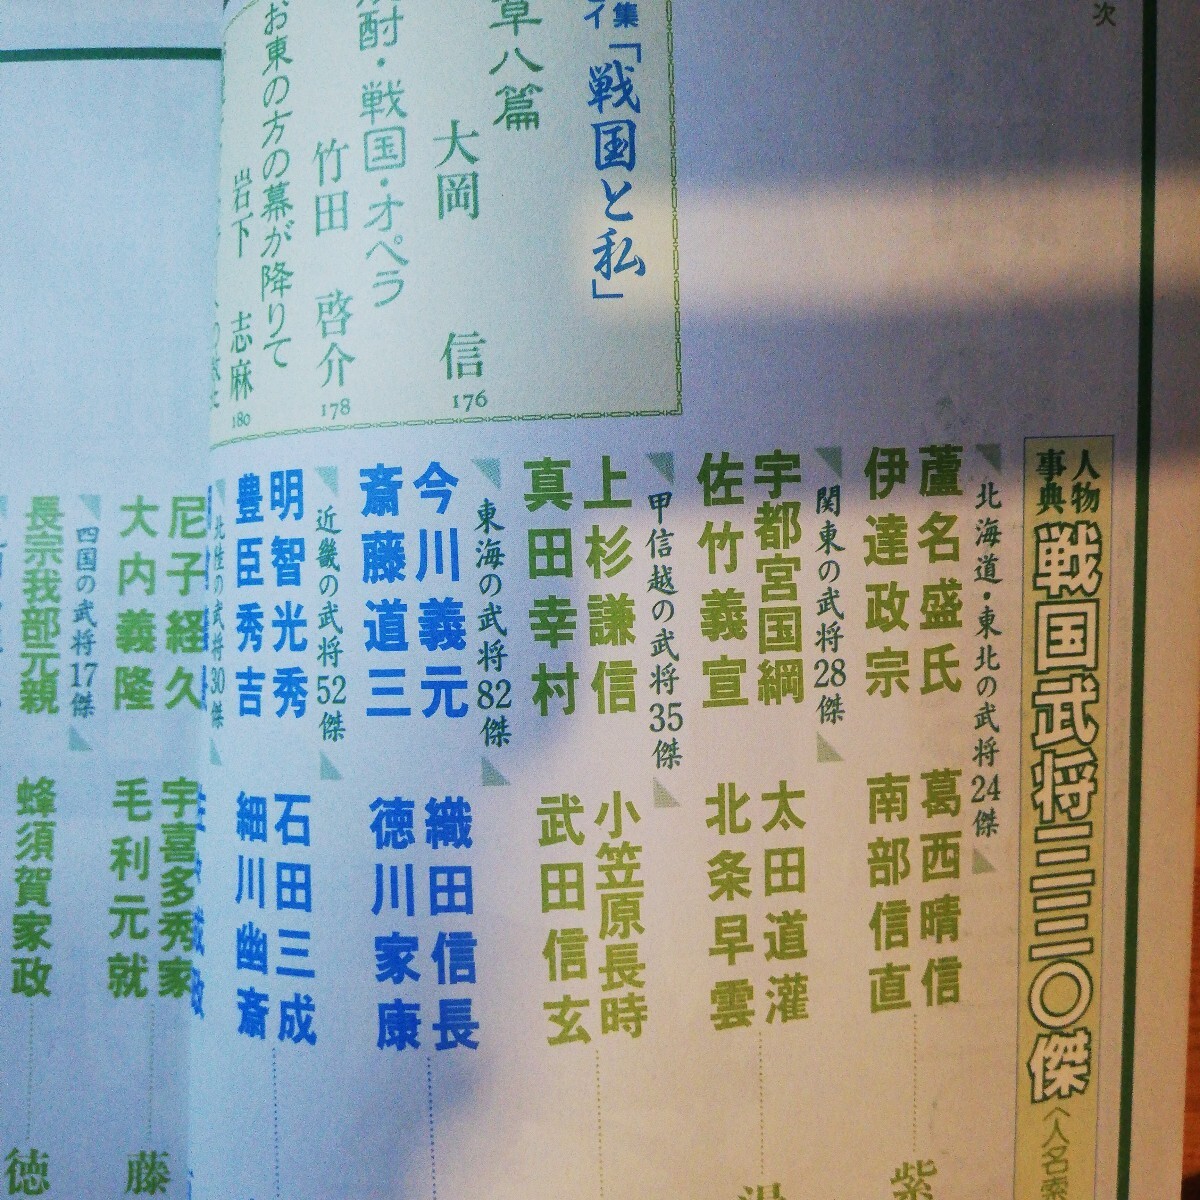 次
集
イ
「戦国と私」
草八篇
大岡　信
176
酎・戦国・オペラ
竹田　啓介
178
お東の方の幕が降りて
岩下　志麻
180
人物
事典
戦国武将三三〇傑
〈人名索
北海道・東北の武将24傑
蘆名盛氏　葛西晴信
伊達政宗　南部信直
紫
関東の武将28傑
宇都宮国綱　太田道灌
佐竹義宣　北条早雲
甲信越の武将35傑
上杉謙信　小笠原長時
真田幸村　武田信玄
東海の武将82傑
今川義元　織田信長
斎藤道三　徳川家康
近畿の武将52傑
明智光秀　石田三成
豊臣秀吉　細川幽斎
北陸の武将30傑
尼子経久　宇喜多秀家
大内義隆　毛利元就
藤
四国の武将17傑
長宗我部元親　蜂須賀家政
徳